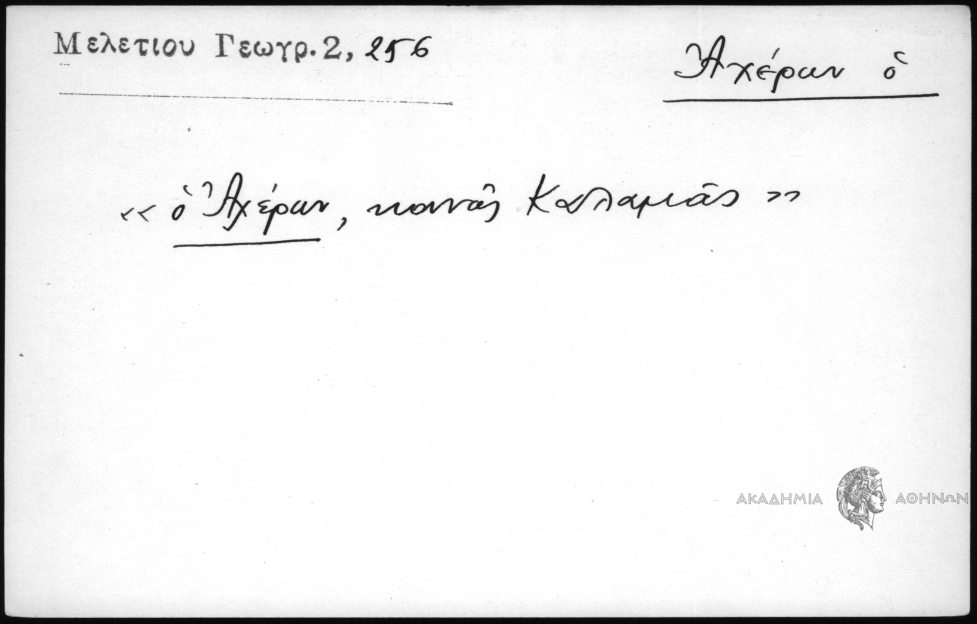 Μελετιου Γεωγρ. 2, 256
Ἀχέρων ὁ
«ὁ Ἀχέρων, κοινῶς Καλαμιᾶς»
ΑΚΑΔΗΜΙΑ ΑΘΗΝΩΝ